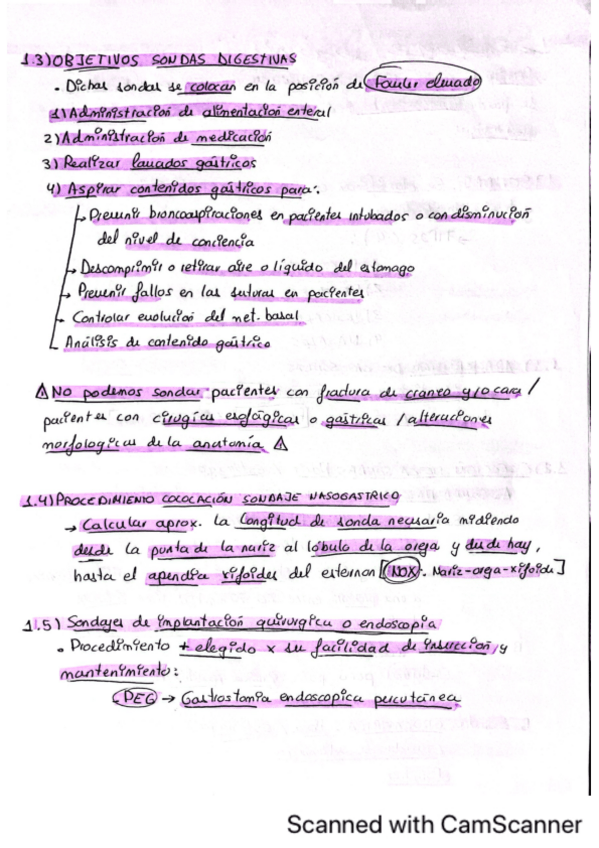 1.3) OBJETIVOS SONDAS DIGESTIVAS
• Dichas sondas se colocan en la posición de Fowler elevado
1) Administración de alimentación enteral
2) Administración de medicación
3) Realizar lavados gástricos
4) Aspirar contenidos gástricos para:
↳ Prevenir broncoaspiraciones en pacientes intubados o con disminución
del nivel de conciencia
→ Descomprimir o retirar aire o líquido del estomago
→ Prevenir fallos en las suturas en pacientes
→ Controlar evolucion del met. basal
Análisis de contenido gástrico
⚠ No podemos sondar pacientes con fractura de craneo y/o cara /
pacientes con cirugías esofágicas o gástricas / alteraciones
morfologicas de la anatomía ⚠
1.4) PROCEDIMIENTO COCOLACIÓN SONDAJE NASOGASTRICO
→ Calcular aprox. la longitud de sonda necesaria midiendo
desde la punta de la nariz al lóbulo de la oreja y desde hay,
hasta el apendice xifoides del esternon [NOX: Nariz-oreja-xifoide]
1.5) Sondajes de implantación quirurgica o endoscopia
• Procedimiento + elegido x su facilidad de inserccion y
mantenimiento:
↳ PEG → Gastrostomia endoscopica percutánea
Scanned with CamScanner